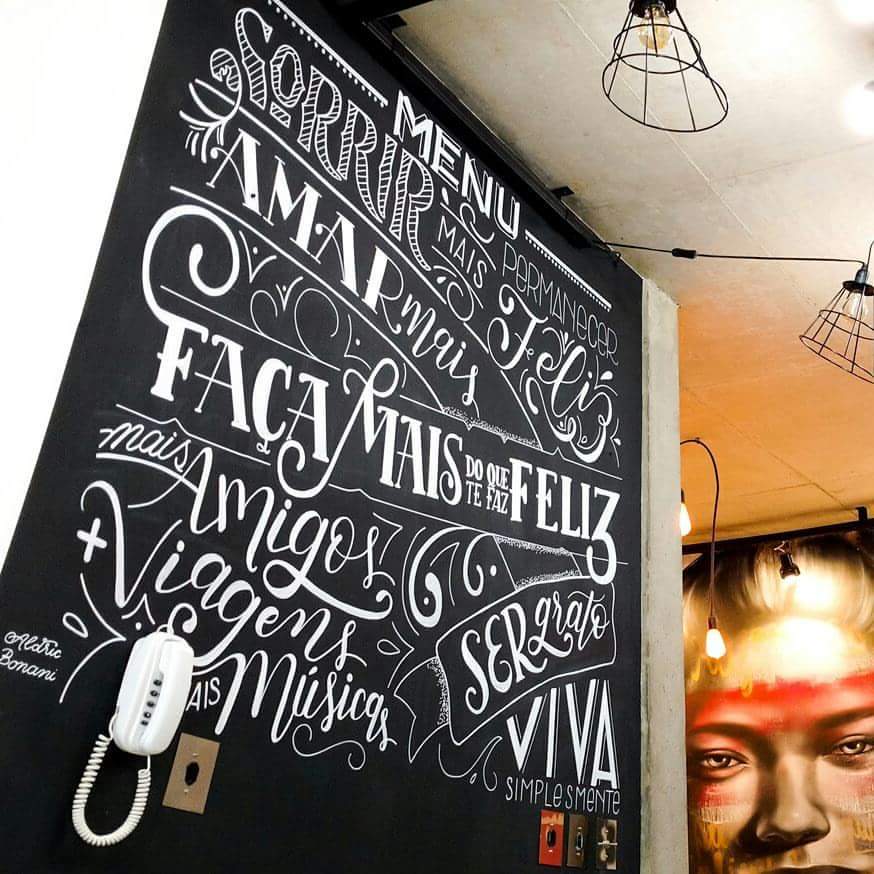 MENU
SORRIR MAIS
PERMANECER
AMAR mais
Feliz
FAÇA MAIS DO QUE TE FAZ FELIZ
mais Amigos
+ Viagens
SER grato
AIS Músicas
VIVA
SIMPLESMENTE
@Aldric
Bonani